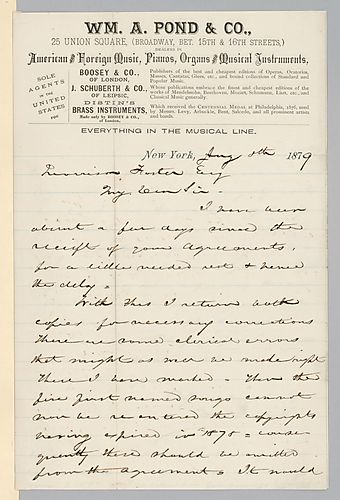 WM. A. POND & CO.,
25 UNION SQUARE, (BROADWAY, BET. 15TH & 16TH STREETS,)
DEALERS IN
American and Foreign Music, Pianos, Organs and Musical Instruments,
SOLE
AGENTS
IN THE
UNITED
STATES
FOR
BOOSEY & CO.,
OF LONDON,
Publishers of the best and cheapest editions of Operas, Oratorios,
Masses, Cantatas, Glees, etc., and bound collections of Standard and
Popular Music.
J. SCHUBERTH & CO.
OF LEIPSIC,
Whose publications embrace the finest and cheapest editions of the
works of Mendelssohn, Beethoven, Mozart, Schumann, Liszt, etc., and
Classical Music generally.
DISTIN'S
BRASS INSTRUMENTS,
Made only by BOOSEY & CO.,
of London,
Which received the CENTENNIAL MEDAL at Philadelphia, 1876, used
by Messrs. Levy, Arbuckle, Bent, Salcedo, and all prominent artists
and bands.
EVERYTHING IN THE MUSICAL LINE.
New York, 1879
Foster Esq
My Dear Sir.
I have been
absent a few days since the
receipt of your Agreements,
for a little needed rest & hence
the delay.
With this I return both
copies for necessary corrections
There are some clerical errors
that might as well be made right
These I have marked. Then the
five first named songs cannot
now be re-entered the copyrights
having expired in 1878 - conse-
quently these should be omitted
from the agreement. It would